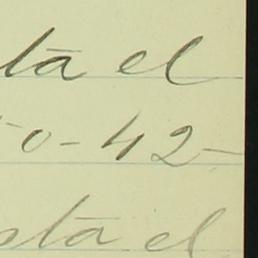 sta el
-0-42-
sta el